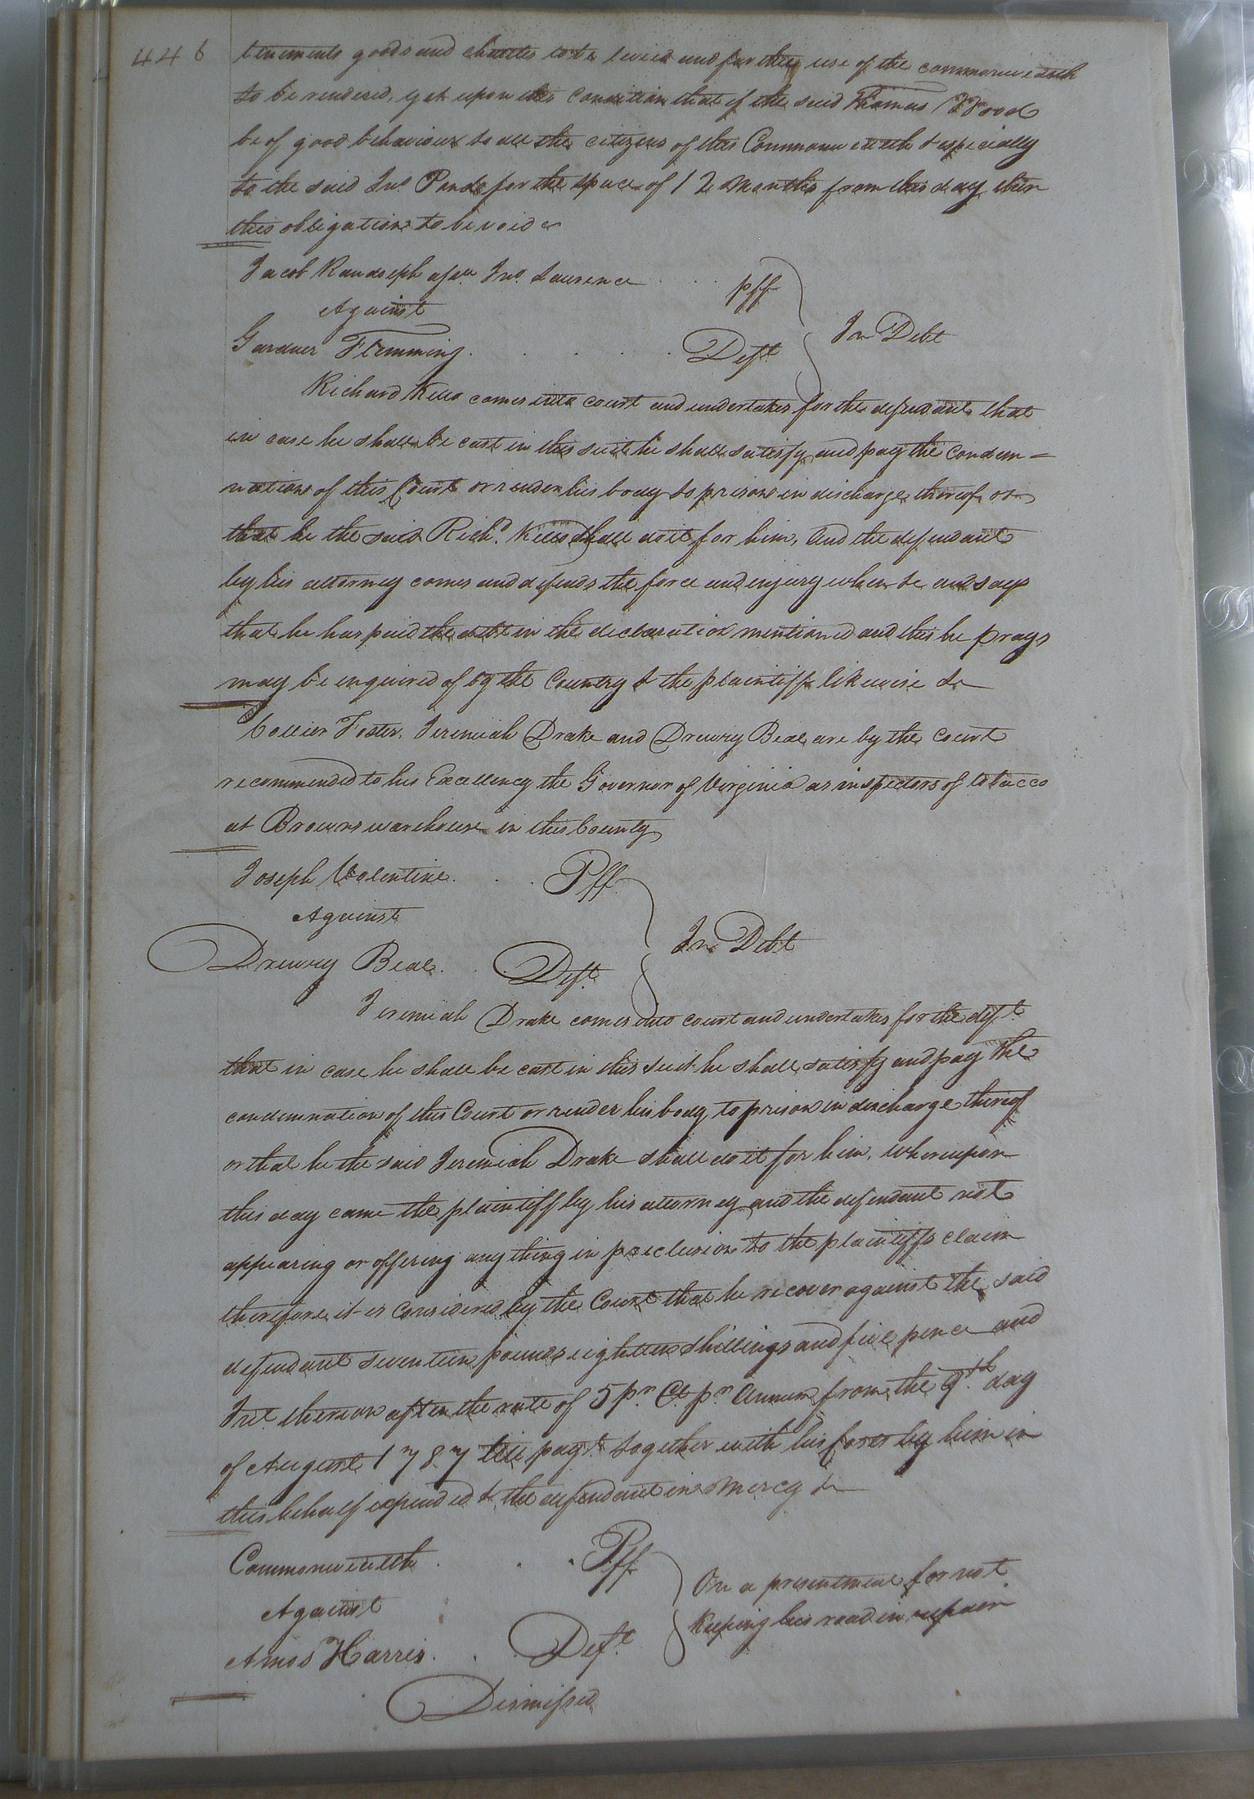 446
tenements goods and chattles to be levied and for the use of the commonwealth
to be rendered, yet upon this condition that if the said Thomas Wood
be of good behaviour to all the citizens of this Commonwealth & especially
to the said Jno. for the space of 12 Months from this day then
this obligation to be void &
Jacob Randolph assee. Jno. Laurence . . . pff
Against
In Debt
Gardner Flemming . . . . . Deft.
Richard comes into court and undertakes for the defendant that
in case he shall be cast in this suit he shall satisfy and pay the condem=
nations of this Court or render his body to prison in discharge thereof or
that he the said Richd. shall do it for him, And the defendant
by his attorney comes and defends the force and injury when &c and says
that he has paid the debt in the declaration mentioned and this he prays
may be inquired of by the Country & the plaintiff likewise &c
Collier Foster, Jeremiah Drake and Drewry Beal are by the court
recommended to his Excellency the Governor of Virginia as inspectors of tobacco
at Browns warehouse in this County
Joseph Valentine . . . Pff
Against
In Debt
Drewry Beal . . Deft.
Jeremiah Drake comes into court and undertakes for the deft.
that in case he shall be cast in this suit he shall satisfy and pay the
condemnation of this Court or render his body to prison in discharge thereof
or that he the said Jeremiah Drake shall do it for him, whereupon
this day came the plaintiff by his attorney and the defendant not
appearing or offering any thing in preclusion to the plaintiffs claim
therefore it is considered by the Court that he recover against the said
defendant seventeen pounds eighteen shillings and five pence and
Int. thereon after the rate of 5 pr. Ct. pr. Annum from the 9th day
of August 1787 till payt. together with his by him in
this behalf expended & the defendant in Mercy &c
Commonwealth . . . Pff
On a presentment for not
Against
keeping his road in repair
Amos Harris . . Deft.
Dismissed